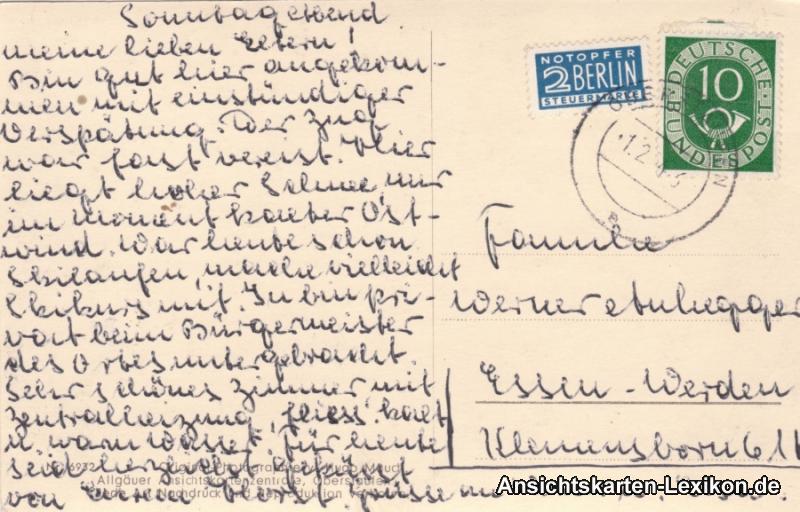 Sonntagabend
meine lieben Eltern!
Bin gut hier angekom-
men mit einstündiger
Verspätung. Der Zug
war fast vereist. Hier
liegt hoher Schnee, nur
im Moment kalter Ost-
wind. War heute schon
Skilaufen, mache vielleicht
Skikurs mit. Ich bin pri-
vat beim Bürgermeister
des Ortes untergebracht.
Sehr schönes Zimmer mit
Zentralheizung, fliess. kalt
u. warm Wasser. Für heute
seid herzlichst gegrüsst
von Eurem Horst. Grüsse
Allgäuer Ansichtskartenzentrale, Oberstaufen
Nachdruck und Reproduktion
NOTOPFER
2 BERLIN
STEUERMARKE
DEUTSCHE BUNDESPOST
10
Familie
Werner
Essen-Werden
Klemensborn
Ansichtskarten-Lexikon.de